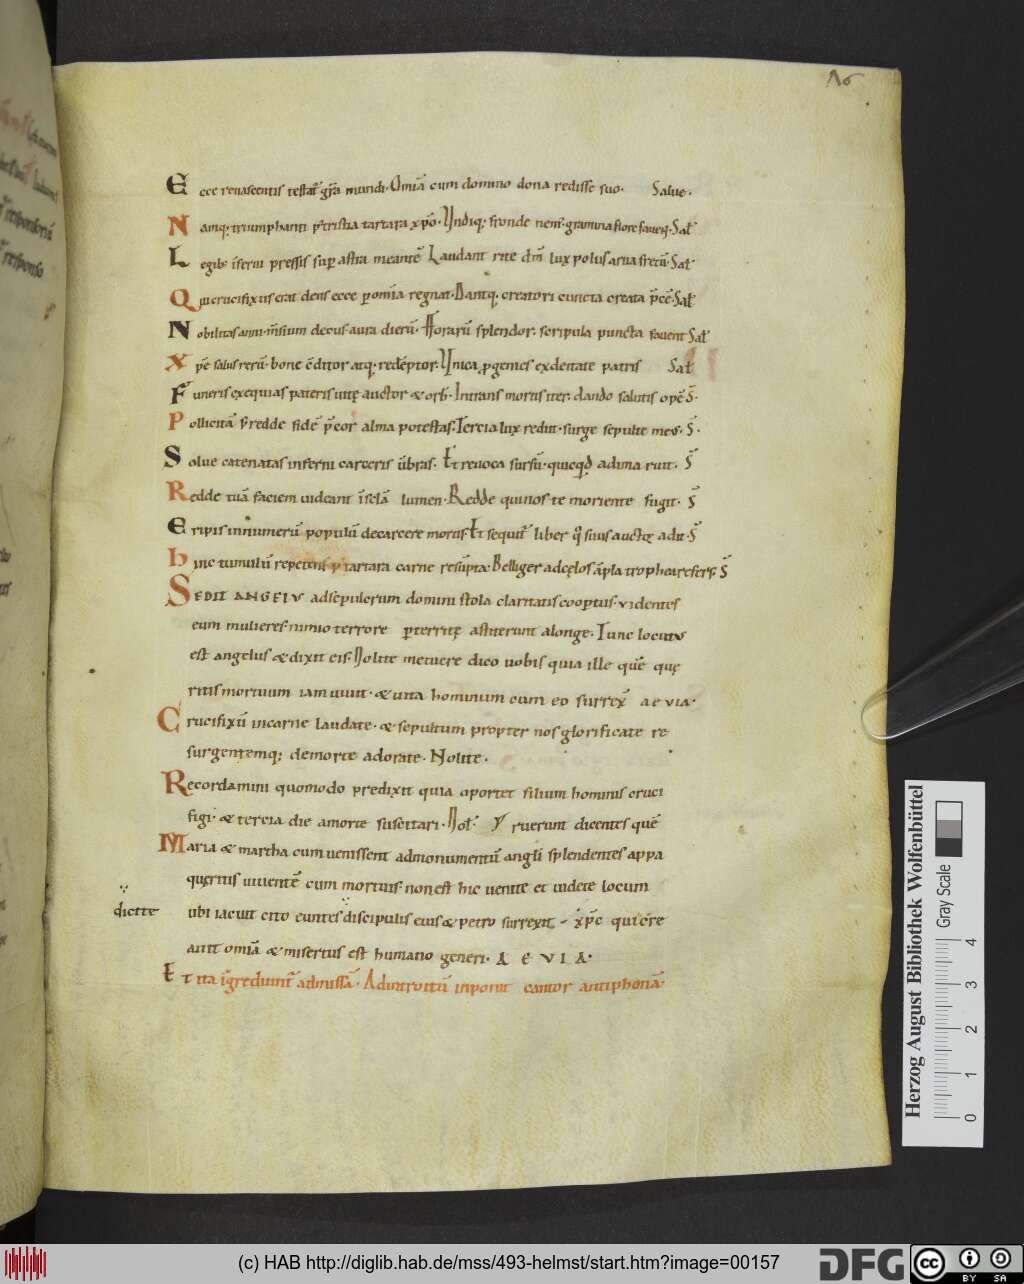 Ecce renascentis testat᷑ gr̃a mundi. Omĩa cum domino dona redisse suo. Salue.
Namq; triumphanti p̾ tristia tartara xp̃o. Vndiq; fronde nem᷒ gramina flore fauent. Sal̃
Legib; ĩferni pressis sup̱ astra meantẽ Laudant rite dm̃ lux polus arua fretũ. Sal̃
Qui crucifixus erat deus ecce p̱ omĩa regnat. Dantq; creatori cuncta creata p̃cẽ. Sal̃
Nobilitas anni. m̃sium decus. aura dierũ. Horarũ splendor. scripula puncta fauent Sal̃
Xp̃e salus rerũ. bone cõditor atq; redẽptor. Vnica ꝓgenies ex deitate patris Sal̃
Funeris exequias pateris uitę auctor & orb᷒. Intrans mortis iter. dando salutis opẽ S̃.
Pollicitã s; redde fidẽ p̃cor alma potestas. Tercia lux rediit. surge sepulte me᷒. S̃.
Solue catenatas inferni carceris ũbras. Et reuoca sursũ. quicq̃d ad ima ruit. S̃
Redde tuã faciem uideant ĩ sc̃la lumen. Redde qui nos te moriente fugit. S̃
Eripis innumerũ populũ de carcere mortis. Et sequit᷑ liber q̊ suus auctor adit. S̃
hinc tumulũ repetens p̾ tartara carne resũpta. Belliger ad cęlos ãpla trophea refers. S̃
SEDIT ANGELVS ad sepulcrum domini stola claritatis coopertus. uidentes
eum mulieres. nimio terrore p̱territę astiterunt alonge. Tunc locutus
est angelus & dixit eis. Nolite metuere dico uobis quia ille quẽ quę
ritis mortuum iam uiuit. & uita hominum cum eo surrex̃ aeuia.
Crucifixũ in carne laudate. & sepultum propter nos glorificate re
surgentemq; de morte adorate. Nolite.
Recordamini quomodo predixit quia oportet filium hominis cruci
figi. & tercia die amorte suscitari. Nol̃. ℣ ruerunt dicentes quẽ
Maria & martha cum uenissent ad monumentũ angl̃i splendentes appa
quęritis uiuentẽ cum mortuis. non est hic uenite et uidete locum
dicite
ubi iacuit cito euntes discipulis eius & petro surrexit xp̃c qui cre
auit omĩa & misertus est humano generi. AEVIA.
Et ita ĩgrediunt᷑ ad missã. Ad introitũ inponit cantor antiphonã.
(c) HAB http://diglib.hab.de/mss/493-helmst/start.htm?image=00157
Herzog August Bibliothek Wolfenbüttel
Gray Scale
0 1 2 3 4
DFG
cc BY SA